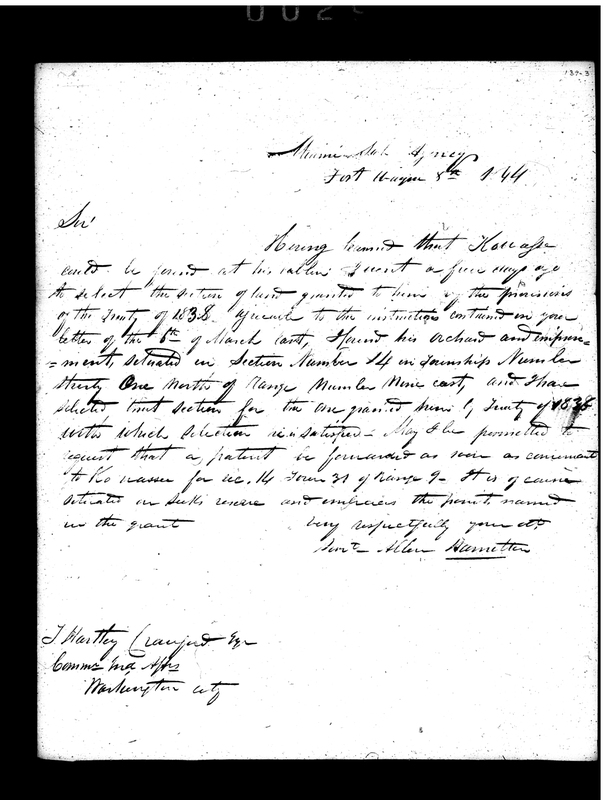 002
137-3
Miami Sub Agency
Fort Wayne 8th 1844
Sir
Having learned that Kowasse
could be found at his cabin I went a few days ago
to select the section of land granted to him by the provisions
of the Treaty of 1838. agreeable to the instructions contained in your
letter of the 6th of March last, I found his orchard and improve=
=ments, situated in Section Number 14 in Township Number
thirty One North of Range Number Nine east, and I have
selected that section for the one granted him by Treaty of 1838
with which selection he is satisfied - May I be permitted to
request that a patent be forwarded as soon as convenient
to Ko wasse for sec. 14 Town 31 of Range 9 - It is of course
situated on Seeks reserve and embraces the points named
in the grant very respectfully your obt
Servt Allen Hamilton
T Hartley Crawford Esqr
Comms Ind Affrs
Washington City